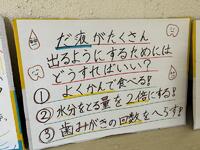 だ液がたくさん
出るようにするためには
どうすればいい?
① よくかんで食べる!!
② 水分をとる量を2倍にする!
③ 歯みがきの回数をへらす!